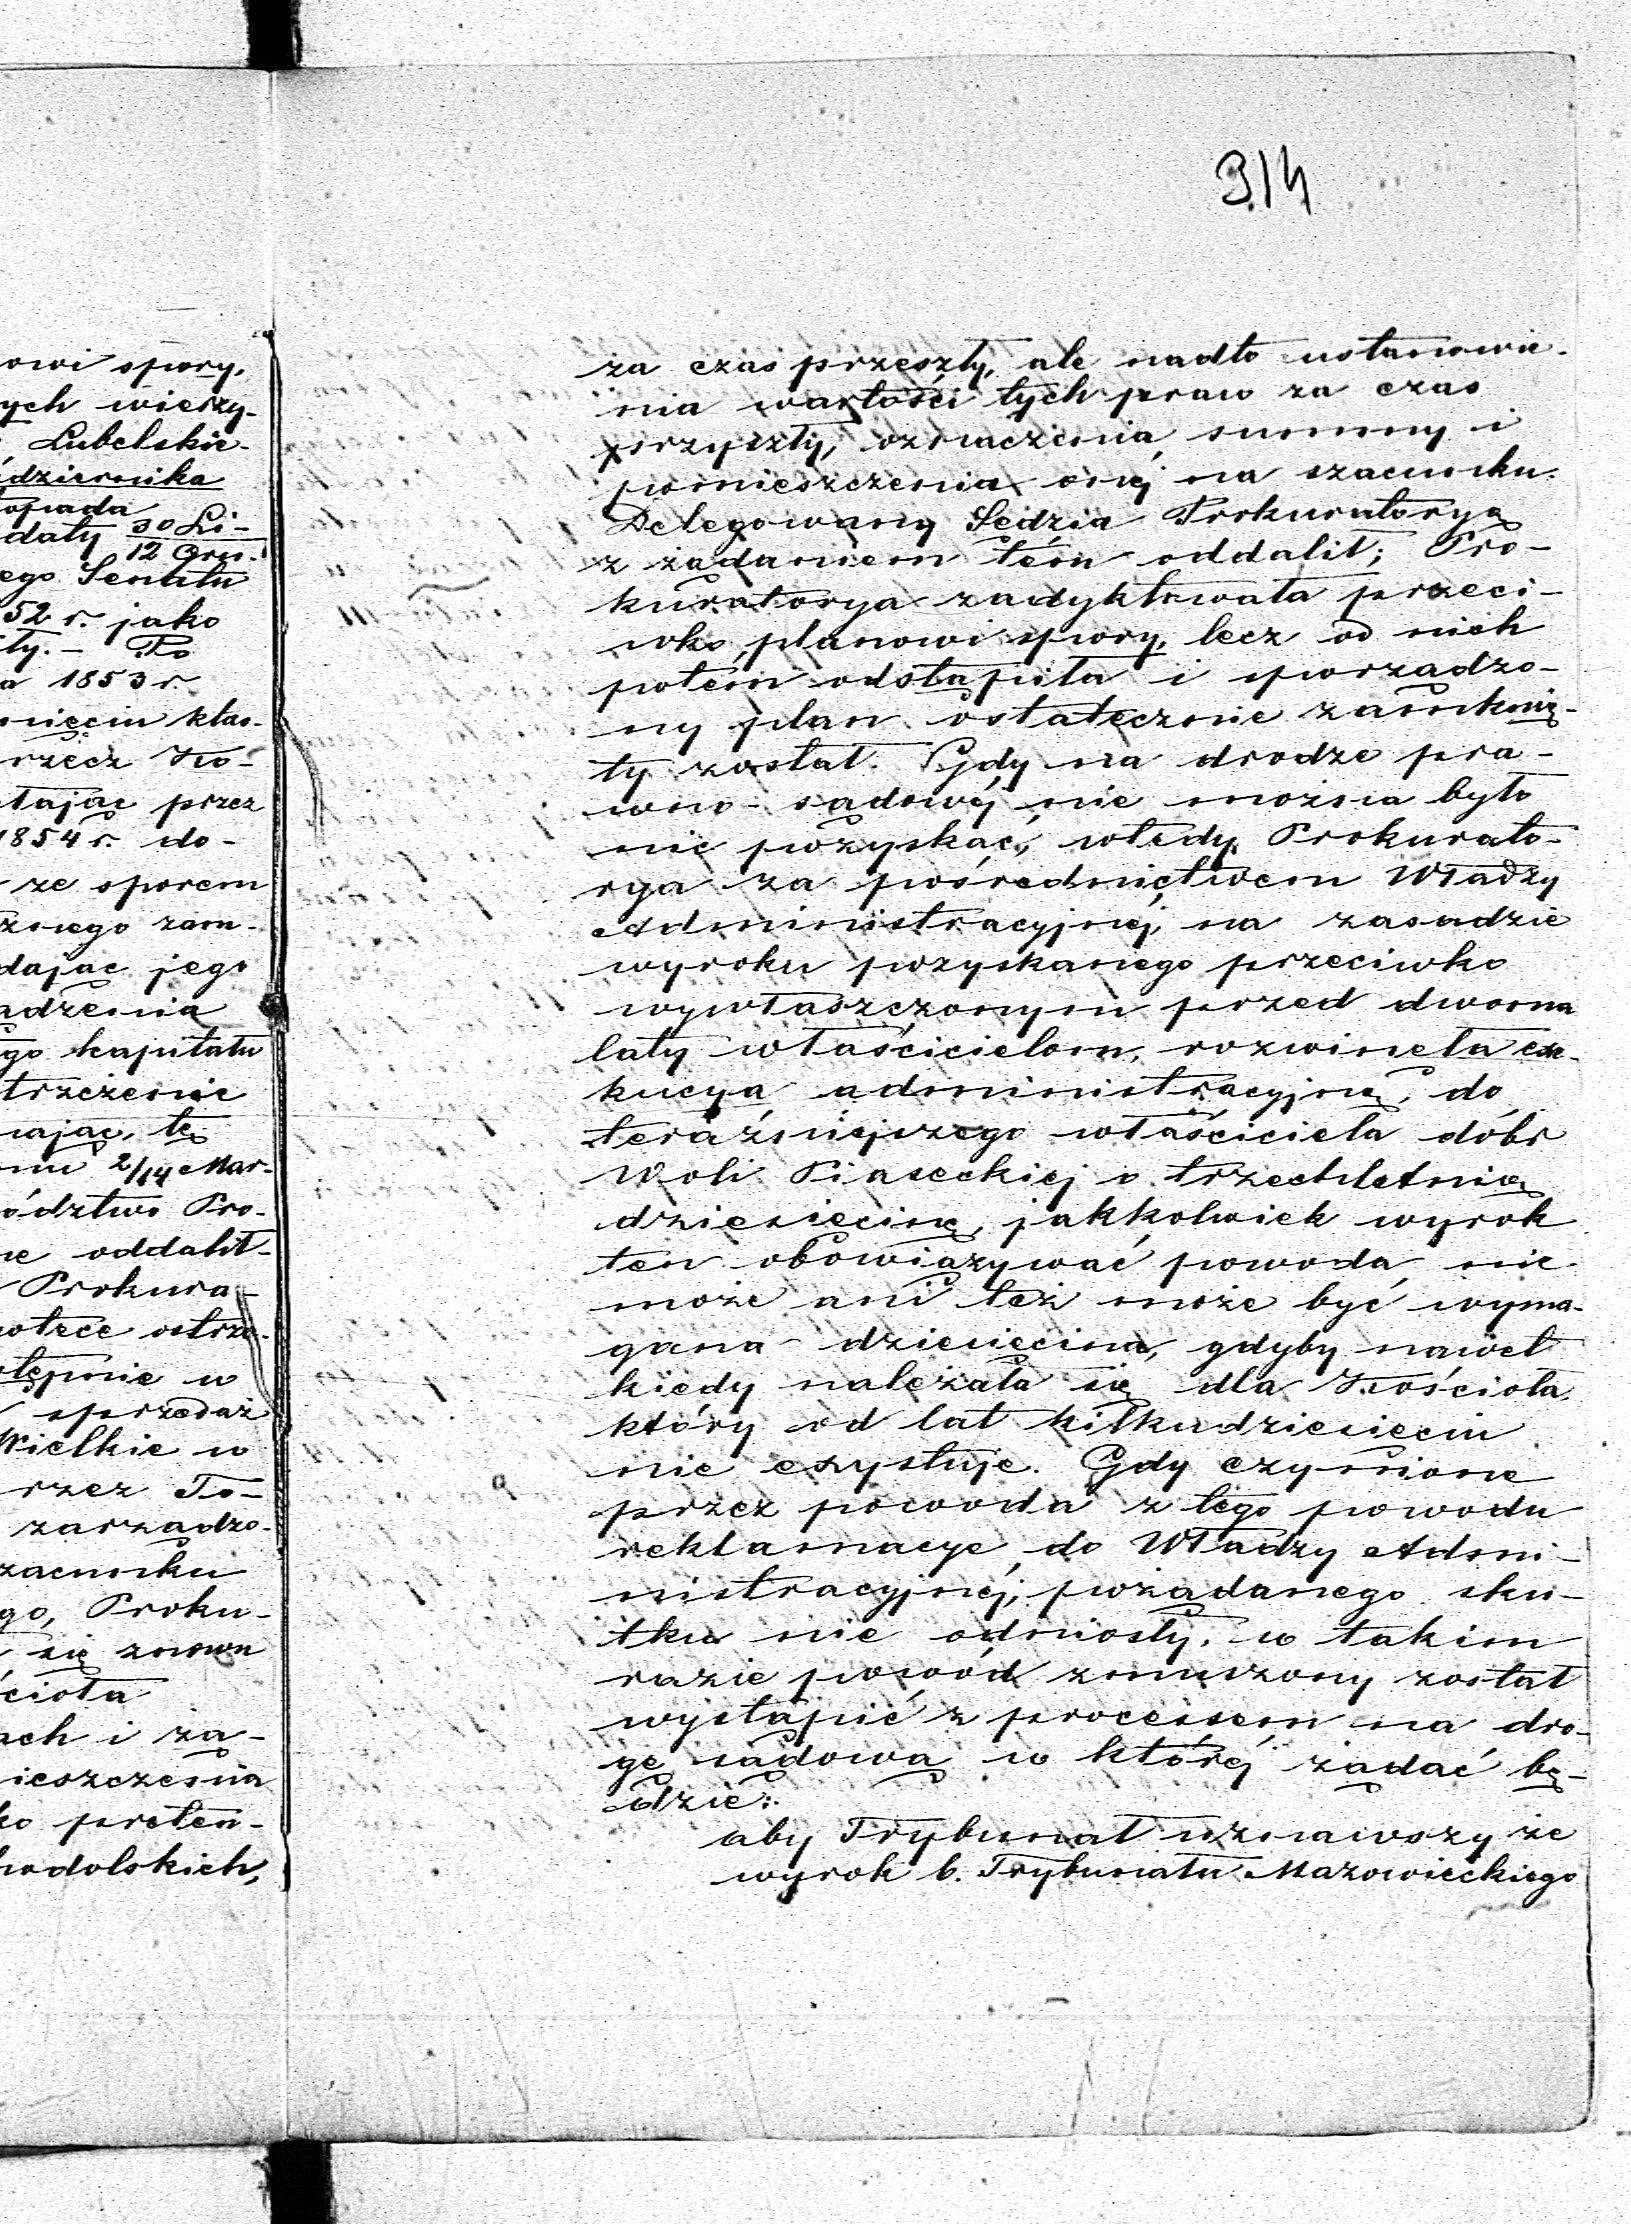 314
owi spory,
ych wierzy-
Lubelskie-
ździernika
topada
daty 30 Li-
12 Gru.
ego Senatu
52 r. jako
ty. – Po
a 1853 r.
nięciu klas-
rzecz Ko-
tając przez
1854 r. do-
ze sporem
znego zam-
dając jego
adzenia
go kapitału
trzeżenie
nając, tę
2/14 Mar-
ództwo Pro-
ne oddalił-
Prokura-
otece ostrze-
stępnie w
sprzedaż
Wielkie w
rzez To-
zarządzo-
zacunku
go, Proku-
się znowu
ścioła
ach i żą-
ieszczenia
ko preten-
hodolskich,
za czas przeszły, ale nadto ustanowie-
nia wartości tych praw za czas
przyszły, oznaczenia summy i
pomieszczenia onej na szacunku.
Delegowany Sędzia Prokuratoryą
z żądaniem tém oddalił; Pro-
kuratorya zadyktowała przeci-
wko planowi spory, lecz od nich
potém odstąpiła i sporządzo-
ny plan ostatecznie zamknię-
ty został. Gdy na drodze pra-
wno-sądowéj nie można było
nic pozyskać, wtedy Prokurato-
rya za pośrednictwem Władzy
Administracyjnéj, na zasadzie
wyroku pozyskanego przeciwko
wywłaszczonym przed dwoma
laty właścicielom, rozwinęła exe-
kucyą administracyjną, do
teraźniejszego właściciela dóbr
Woli Piaseckiej o trzechletnią
dziesięcinę, jakkolwiek wyrok
ten obowiązywać powoda nie
może ani też może być wyma-
gana dziesięcina, gdyby nawet
kiedy należała się dla Kościoła,
który od lat kilkudziesięciu
nie exystuje. Gdy czynione
przez powoda z tego powodu
reklamacye do Władzy Admi-
nistracyjnéj, pożądanego sku-
tku nie odniosły, w takim
razie powód zmuszony został
wystąpić z processem na dro-
gę sądową w któréj żądać bę-
dzie:
aby Trybunał uznawszy że
wyrok b. Trybunału Mazowieckiego